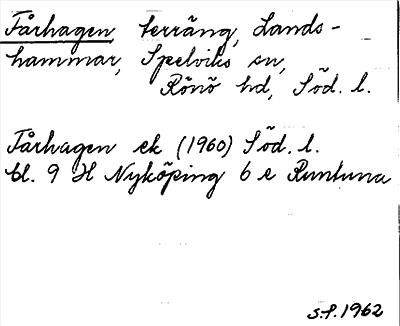 Fårhagen terräng, Lands-
hammar, Spelviks sn,
Rönö hd, Söd. l.
Fårhagen ek (1960) Söd. l.
bl. 9 H Nyköping 6 e Runtuna
S.f. 1962